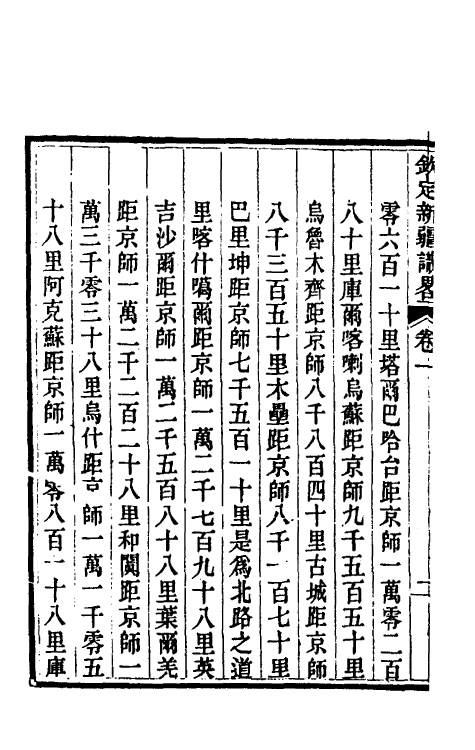 欽定新疆識畧 卷一 二
零六百一十里塔爾巴哈台距京師一萬零二百
八十里庫爾喀喇烏蘇距京師九千五百五十里
烏魯木齊距京師八千八百四十里古城距京師
八千三百五十里木壘距京師八千一百七十里
巴里坤距京師七千五百一十里是爲北路之道
里喀什噶爾距京師一萬二千七百九十八里英
吉沙爾距京師一萬二千五百八十八里葉爾羌
距京師一萬二千二百二十八里和闐距京師一
萬三千零三十八里烏什距京師一萬一千零五
十八里阿克蘇距京師一萬零八百一十八里庫